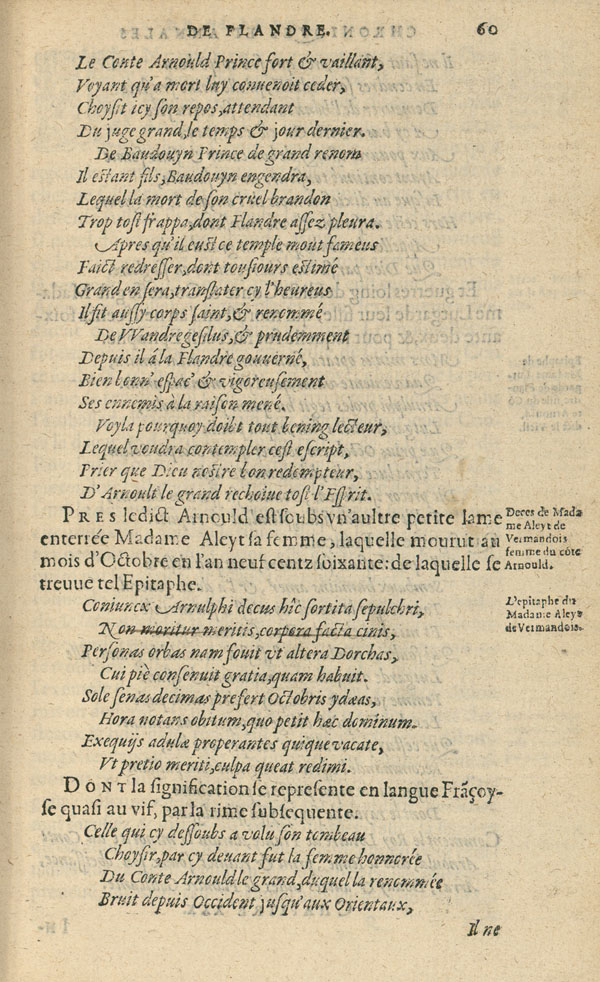 DE FLANDRE. 60
Le Conte Arnould Prince fort & vaillant,
Voyant qu'a mort luy conuenoit ceder,
Choysit icy son repos, attendant
Du juge grand, le temps & jour dernier.
De Baudouyn Prince de grand renom
Il estant fils, Baudouyn engendra,
Lequel la mort de son cruel brandon
Trop tost frappa, dont Flandre assez pleura.
Apres qu'il eust ce temple mout fameus
Faict redresser, dont tousiours estimé
Grand en sera, translater cy l'heureus
Il fit aussy corps saint, & renommé
De VVandregesilus, & prudemment
Depuis il á la Flandre gouuerné,
Bien bonn' espac' & vigoreusement
Ses ennemis à la raison mené.
Voyla pourquoy doibt tout bening lecteur,
Lequel voudra contempler cest escript,
Prier que Dieu nostre bon redempteur,
D'Arnoult le grand rechoiue tost l'Esprit.
PRES ledict Arnould est soubs vn'aultre petite lame
enterrée Madame Aleyt sa femme, laquelle mourut au
mois d'Octobre en l'an neuf centz soixante: de laquelle se
treuue tel Epitaphe.
Deces de Mada
me Aleyt de
Vermandois
femme du cõte
Arnould.
Coniunex Arnulphi decus hîc sortita sepulchri,
Non moritur meritis, corpora facta cinis,
Personas orbas nam fouit vt altera Dorchas,
Cui piè consenuit gratia, quam habuit.
Sole senas decimas prefert Octobris ydæas,
Hora notans obitum, quo petit hæc dominum.
Exequijs adulæ properantes quique vacate,
Vt pretio meriti, culpa queat redimi.
L'epitaphe du
Madame Aleyt
de Vermandois.
DONT la signification se represente en langue Frãçoy-
se quasi au vif, par la rime subsequente.
Celle qui cy dessoubs a volu son tombeau
Choysir, par cy deuant fut la femme honnorée
Du Conte Arnould le grand, duquel la renommée
Bruit depuis Occident jusqu'aux Orientaux,
Il ne